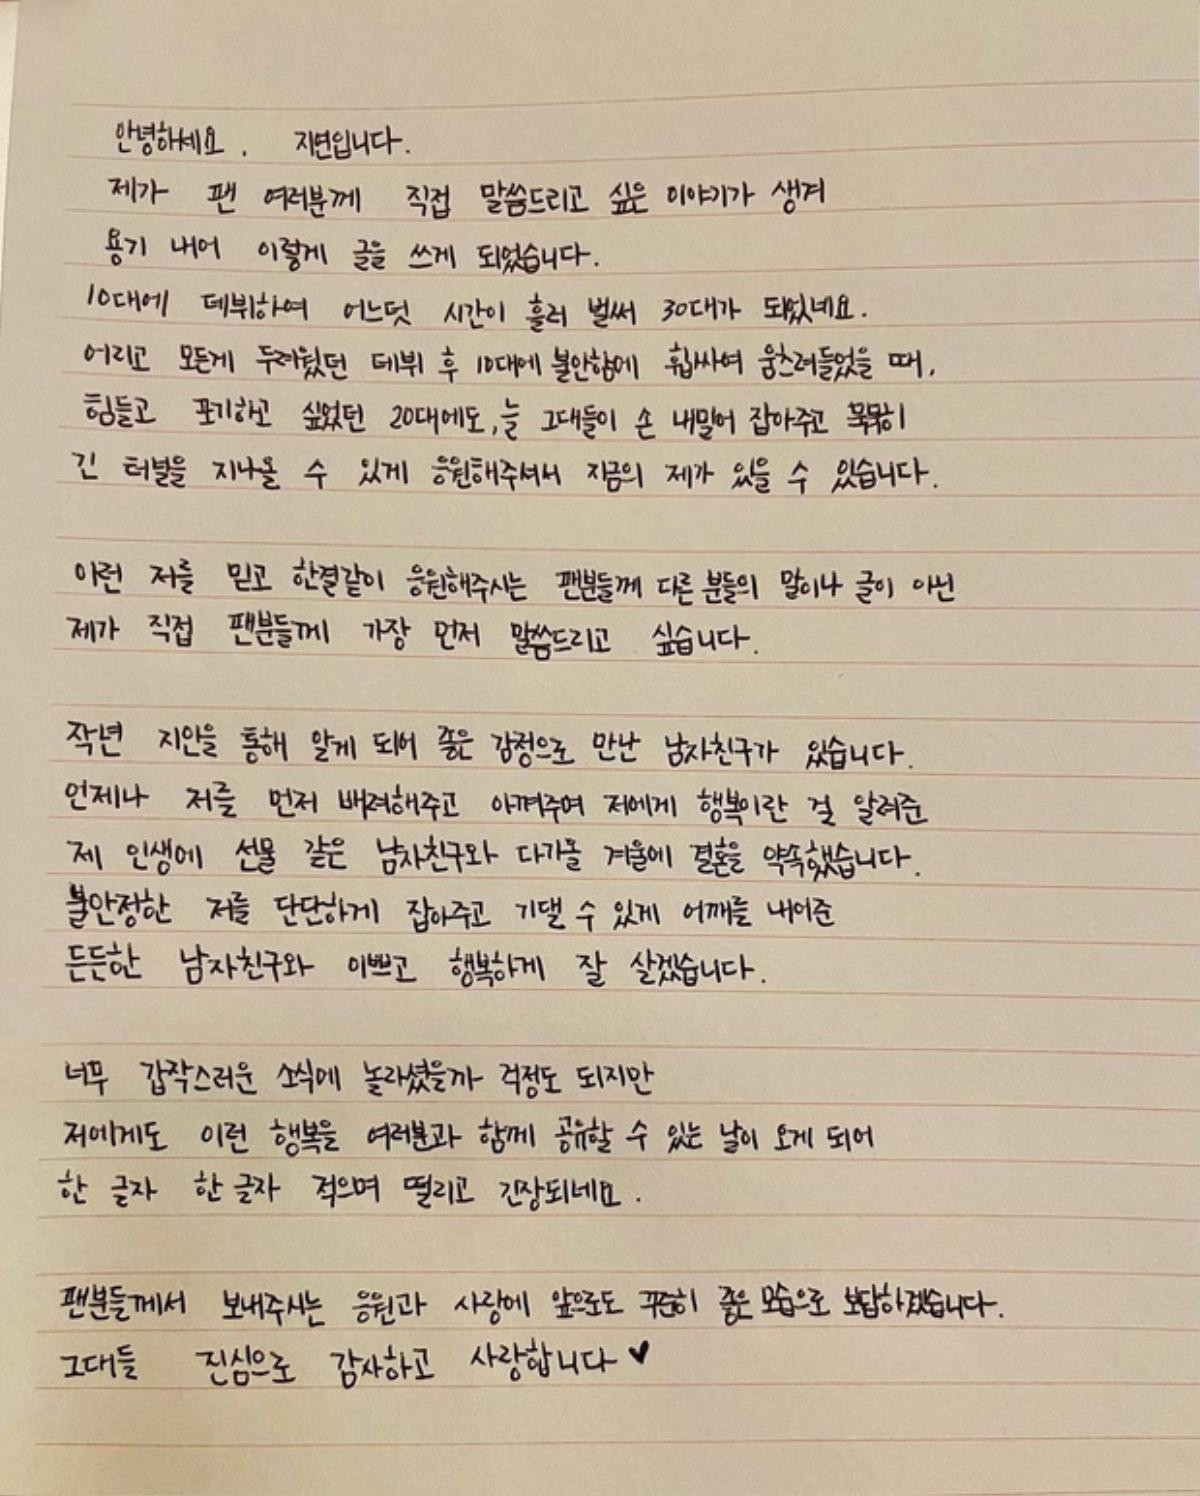 안녕하세요. 지연입니다.
제가 팬 여러분께 직접 말씀드리고 싶은 이야기가 생겨
용기 내어 이렇게 글을 쓰게 되었습니다.
10대에 데뷔하여 어느덧 시간이 흘러 벌써 30대가 되었네요.
어리고 모든게 두려웠던 데뷔 후 10대에 불안함에 휩싸여 움츠려들었을 때,
힘들고 포기하고 싶었던 20대에도, 늘 그대들이 손 내밀어 잡아주고 묵묵히
긴 터널을 지나올 수 있게 응원해주셔서 지금의 제가 있을 수 있습니다.
이런 저를 믿고 한결같이 응원해주시는 팬분들께 다른 분들의 말이나 글이 아닌
제가 직접 팬분들께 가장 먼저 말씀드리고 싶습니다.
작년 지인을 통해 알게 되어 좋은 감정으로 만난 남자친구가 있습니다.
언제나 저를 먼저 배려해주고 아껴주며 저에게 행복이란 걸 알려준
제 인생에 선물 같은 남자친구와 다가올 겨울에 결혼을 약속했습니다.
불안정한 저를 단단하게 잡아주고 기댈 수 있게 어깨를 내어준
든든한 남자친구와 이쁘고 행복하게 잘 살겠습니다.
너무 갑작스러운 소식에 놀라셨을까 걱정도 되지만
저에게도 이런 행복을 여러분과 함께 공유할 수 있는 날이 오게 되어
한 글자 한 글자 적으며 떨리고 긴장되네요.
팬분들께서 보내주시는 응원과 사랑에 앞으로도 꾸준히 좋은 모습으로 보답하겠습니다.
그대들 진심으로 감사하고 사랑합니다 ♥